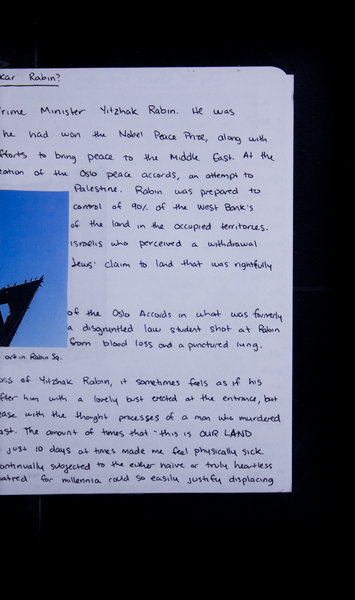 kar Rabin?
rime Minister Yitzhak Rabin. He was
he had won the Nobel Peace Prize, along with
fforts to bring peace to the Middle East. At the
eation of the Oslo peace accords, an attempt to
Palestine. Rabin was prepared to
control of 90% of the West Bank's
of the land in the occupied territories.
Israelis who perceived a withdrawal
Jews' claim to land that was rightfully
of the Oslo Accords in what was formerly
a disgruntled law student shot at Rabin
from blood loss and a punctured lung.
art in Rabin Sq.
oss of Yitzhak Rabin, it sometimes feels as if his
fter him with a lovely bust erected at the entrance, but
ease with the thought processes of a man who murdered
ast. The amount of times that "this is OUR LAND
just 10 days at times made me feel physically sick.
ontinually subjected to the either naive or truly heartless
atred for millennia could so easily justify displacing